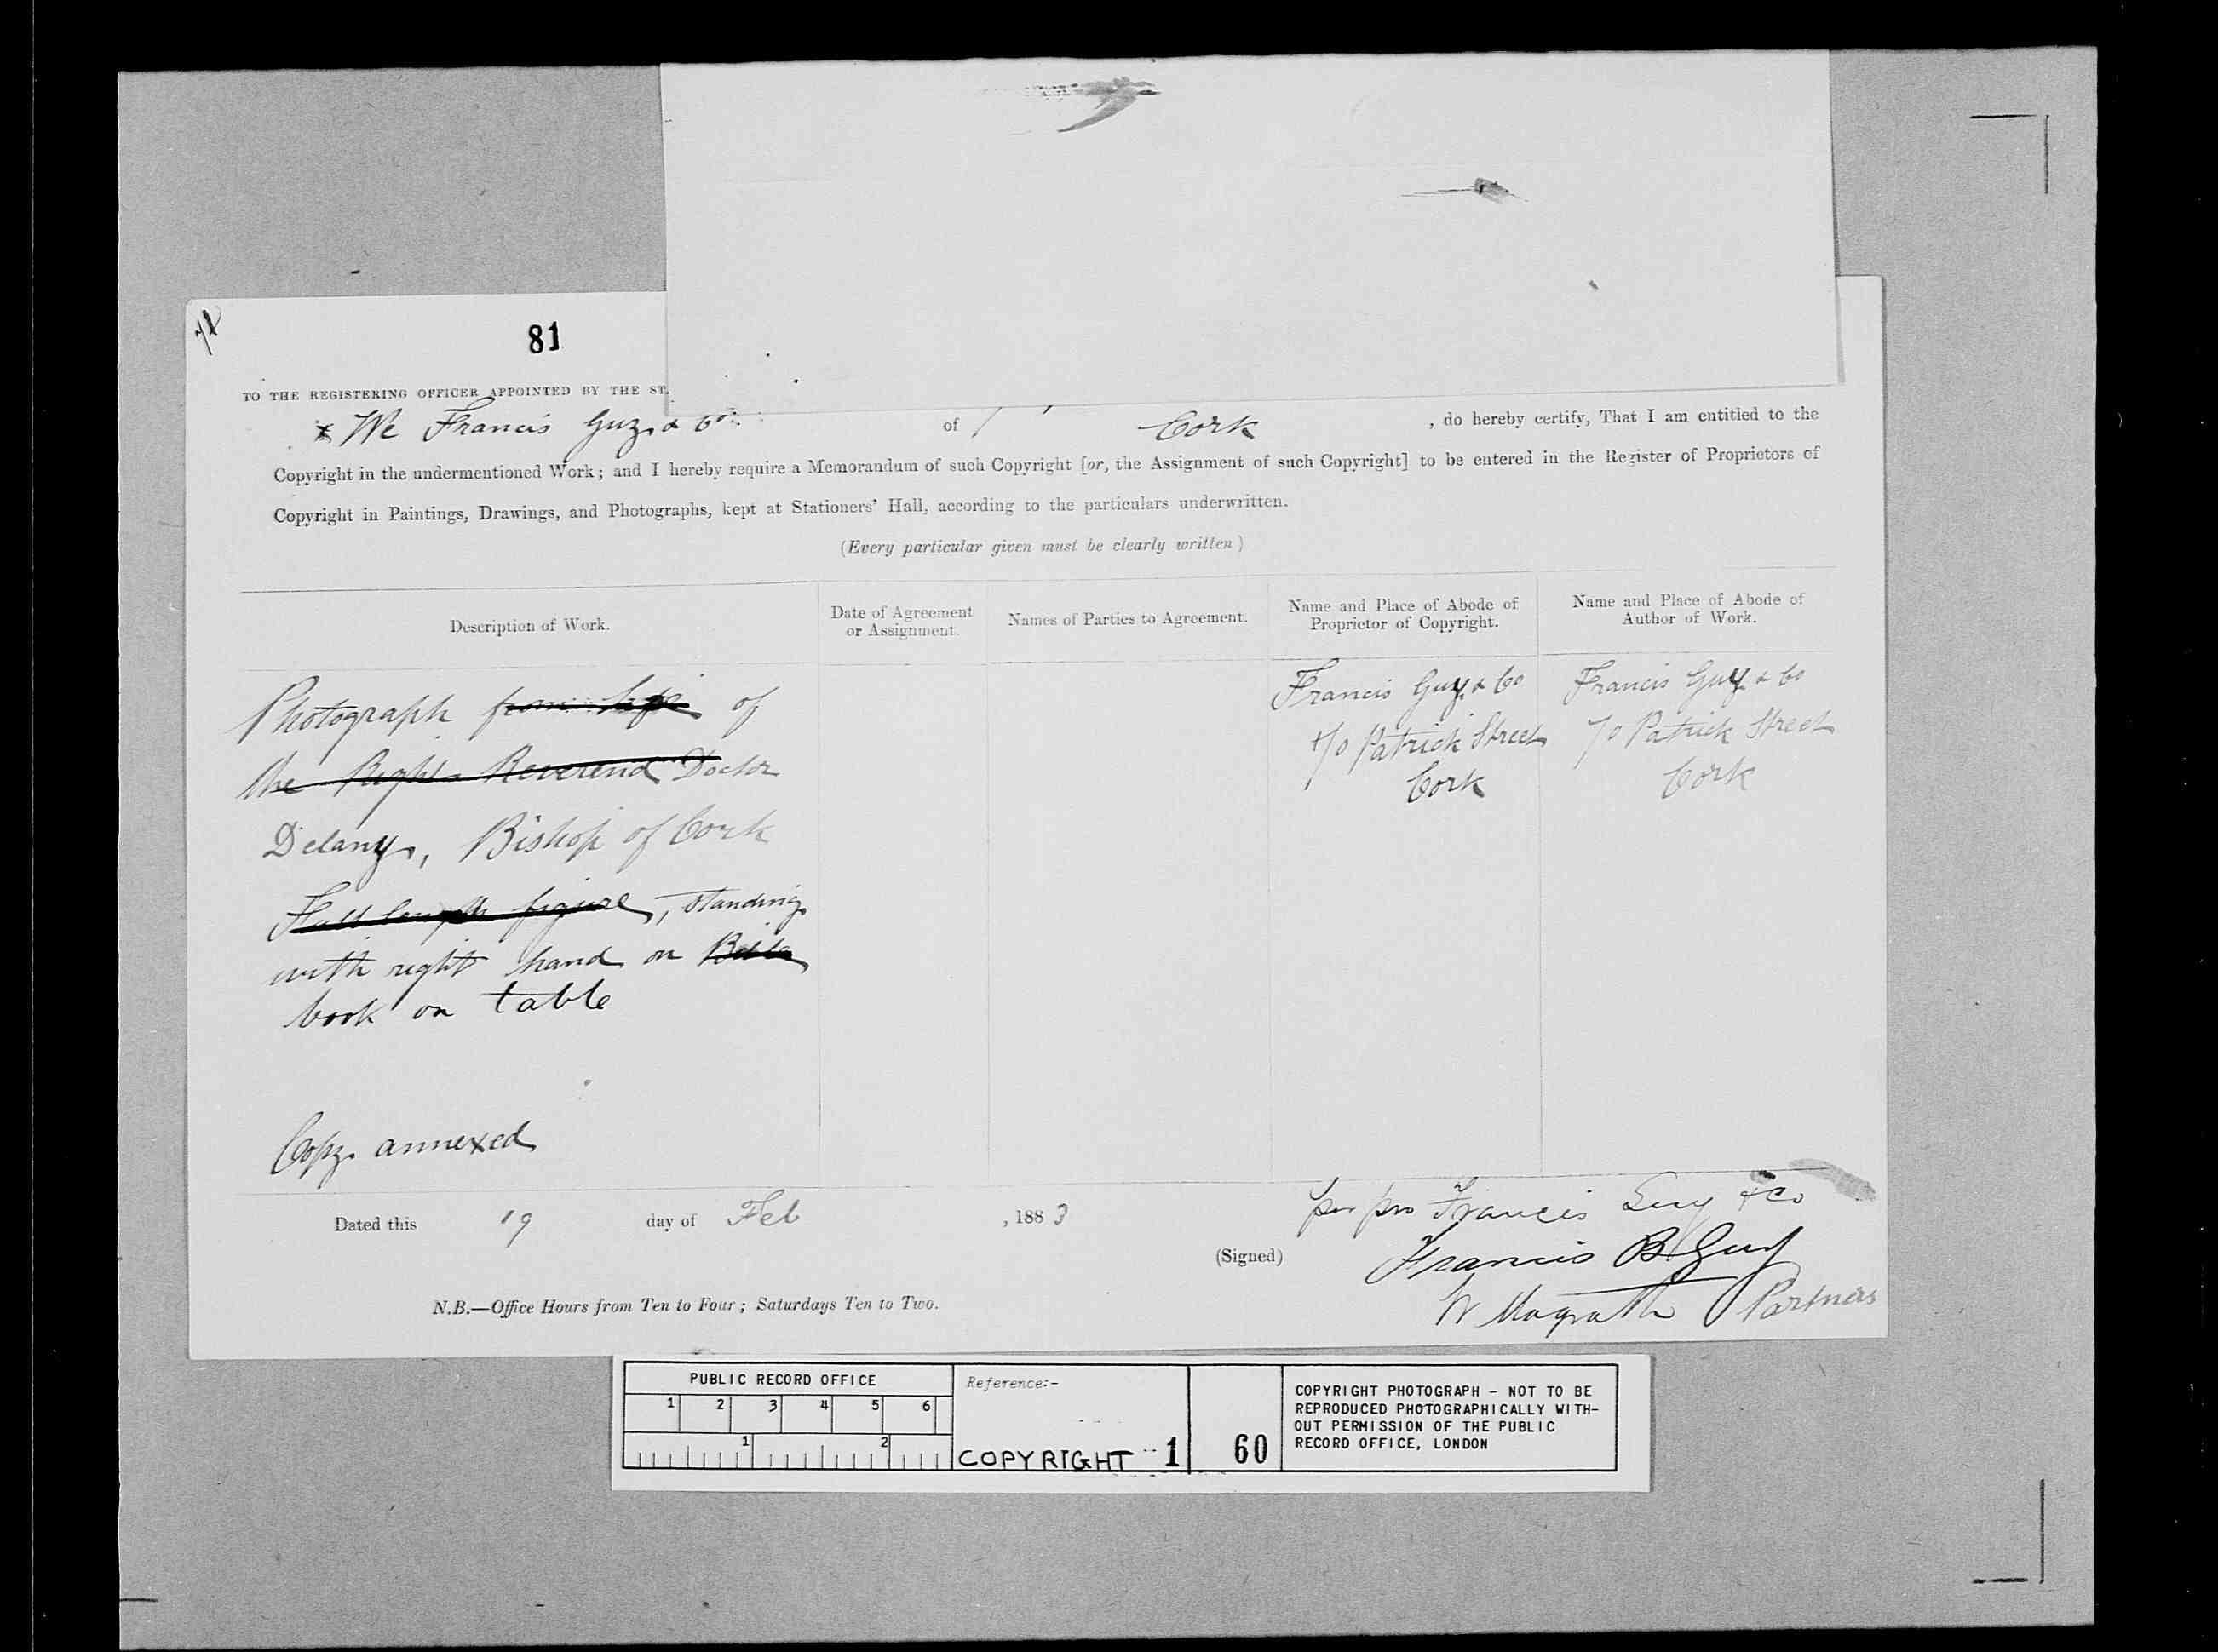 81
TO THE REGISTERING OFFICER APPOINTED BY THE ST
We Francis Guy & Co of Cork , do hereby certify, That I am entitled to the
Copyright in the undermentioned Work; and I hereby require a Memorandum of such Copyright [or, the Assignment of such Copyright] to be entered in the Register of Proprietors of
Copyright in Paintings, Drawings, and Photographs, kept at Stationers' Hall, according to the particulars underwritten.
(Every particular given must be clearly written)
Description of Work.
Date of Agreement
or Assignment.
Names of Parties to Agreement.
Name and Place of Abode of
Proprietor of Copyright.
Name and Place of Abode of
Author of Work.
Photograph from life of
the Right Reverend Doctor
Delany, Bishop of Cork
Full length figure, standing
with right hand on
book on table
Copy annexed
Francis Guy & Co
70 Patrick Street
Cork
Francis Guy & Co
70 Patrick Street
Cork
Dated this 19 day of Feb , 1883
per pro Francis Guy & Co
(Signed) Francis B Guy
W Magrath Partners
N.B.—Office Hours from Ten to Four; Saturdays Ten to Two.
PUBLIC RECORD OFFICE
1 2 3 4 5 6
1 2
Reference:-
COPYRIGHT 1 60
COPYRIGHT PHOTOGRAPH - NOT TO BE
REPRODUCED PHOTOGRAPHICALLY WITH-
OUT PERMISSION OF THE PUBLIC
RECORD OFFICE, LONDON